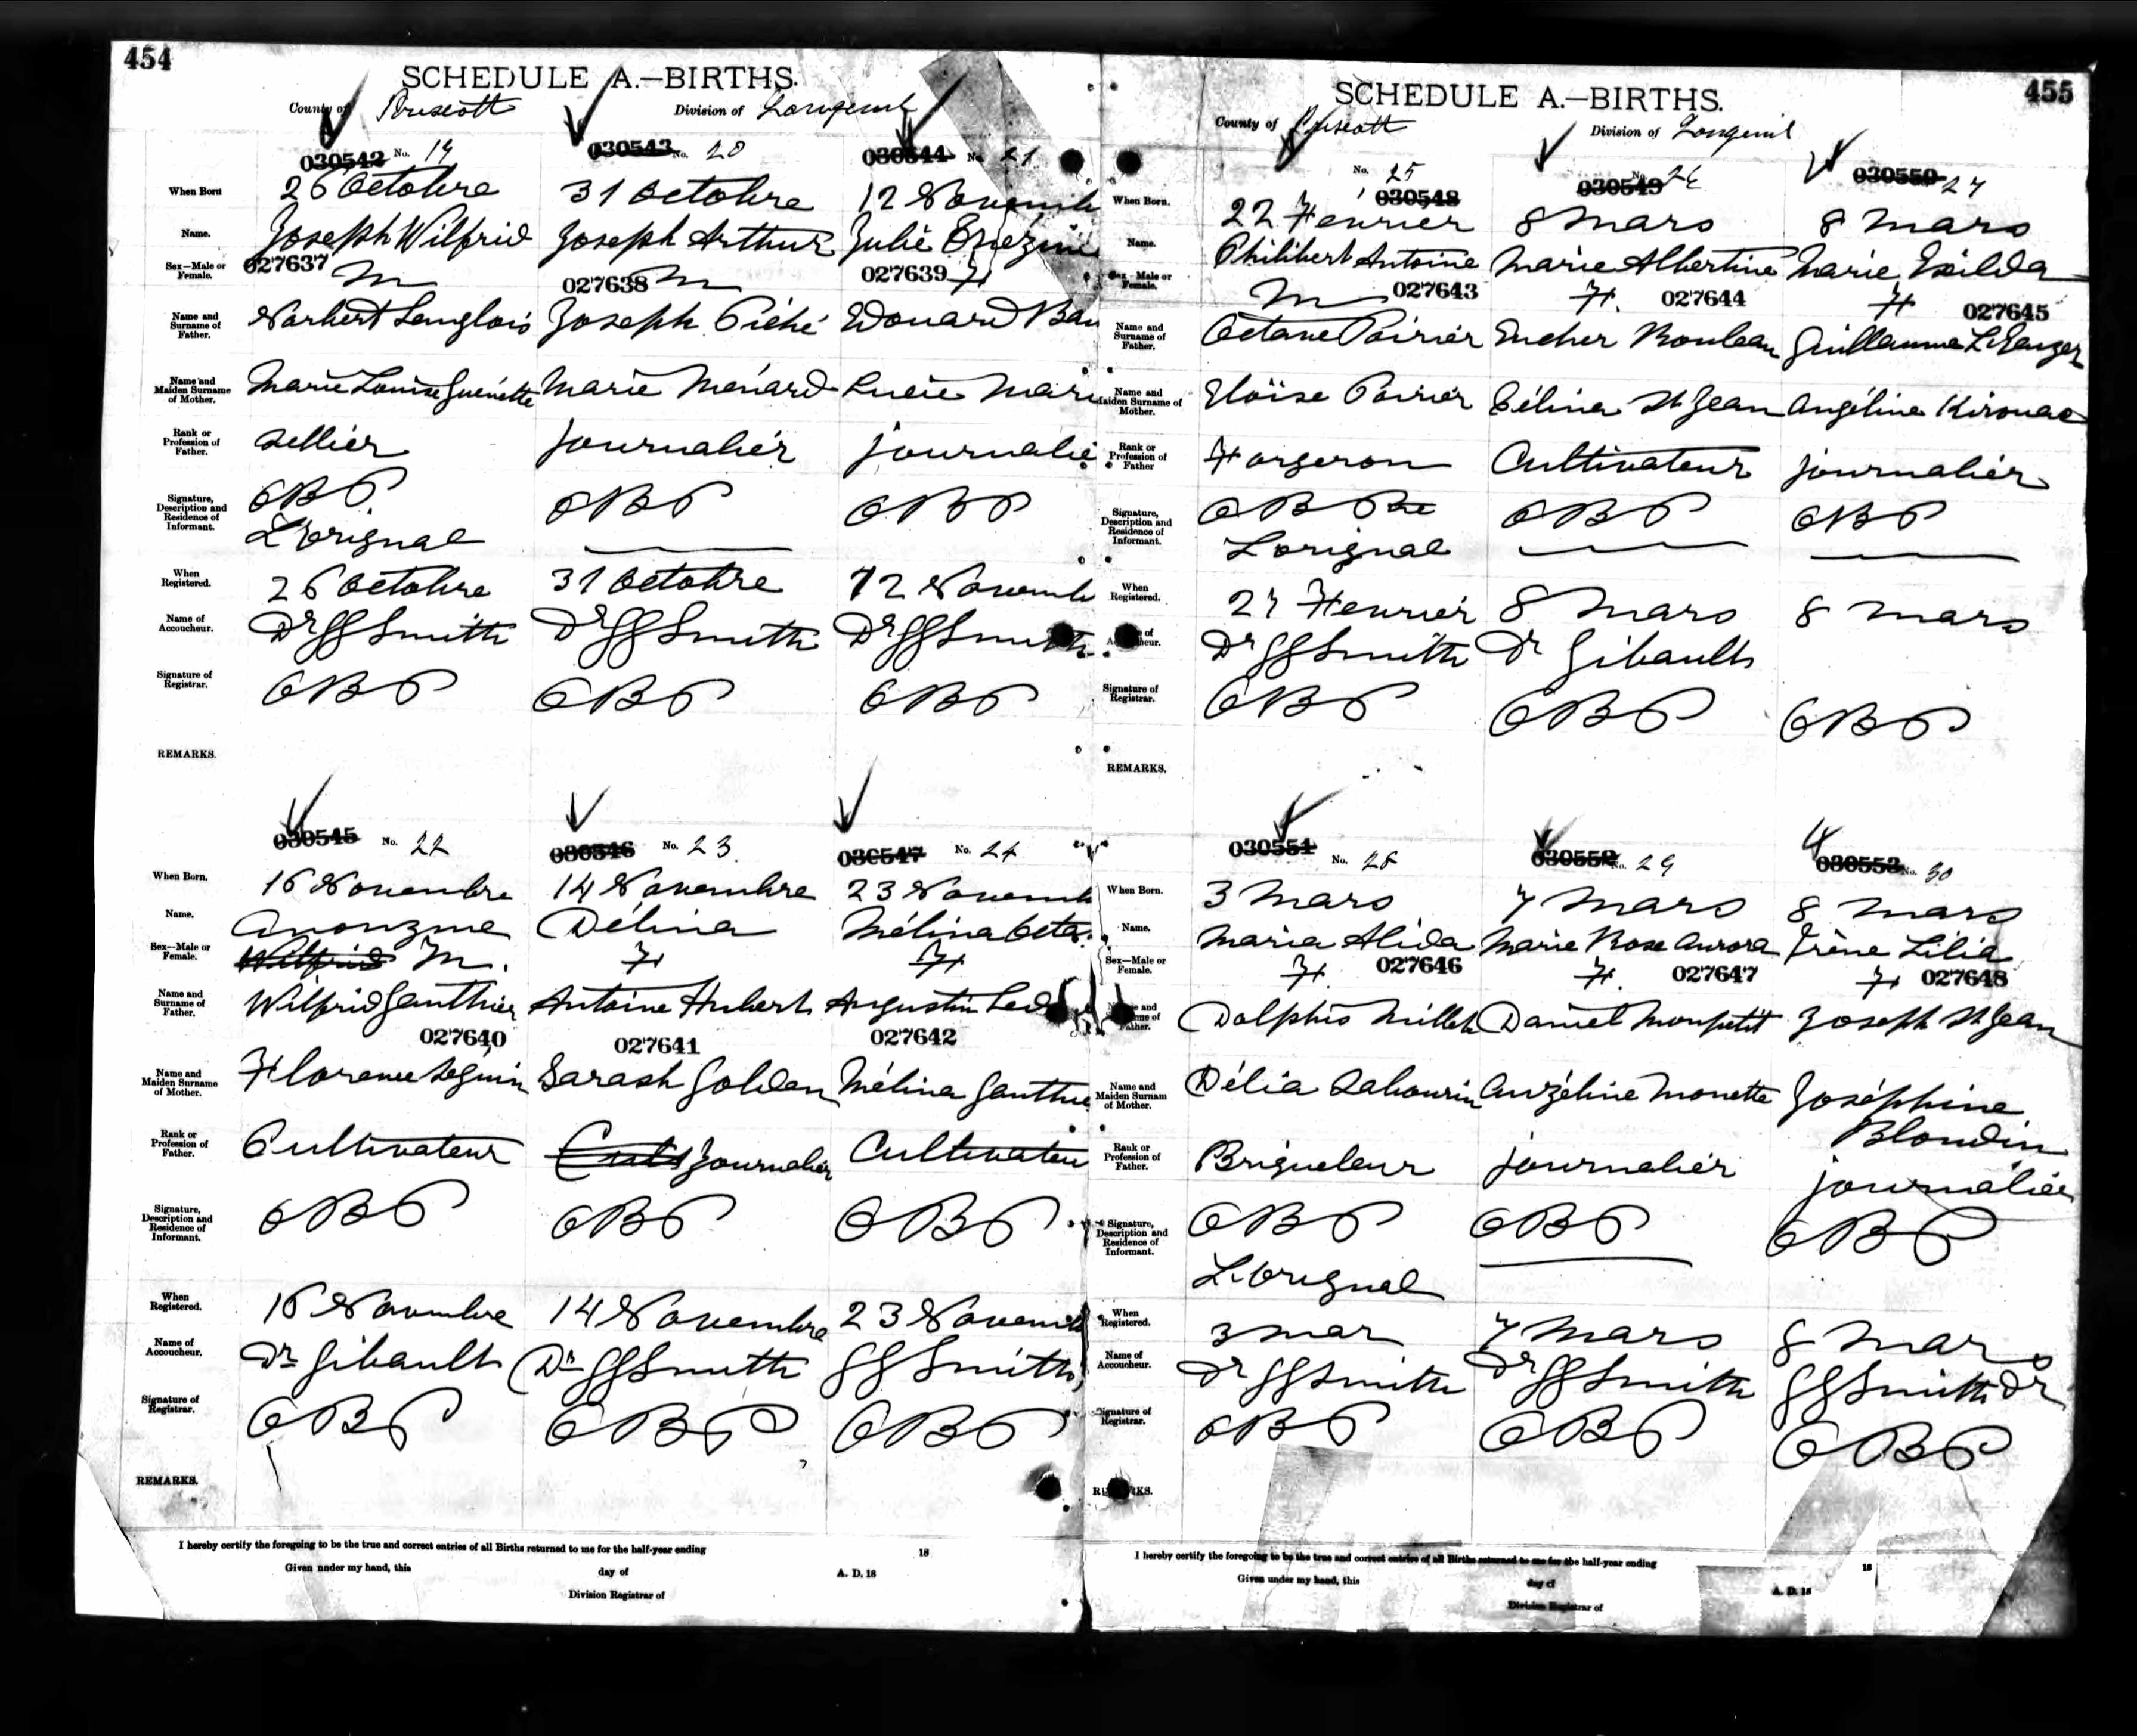 454
SCHEDULE A.—BIRTHS.
County of Prescott Division of
030542 No. 19 030543 No. 20 030544 No. 21
When Born 26 Octobre 31 Octobre 12 Novemb
Name. Joseph Wilfrid Joseph Arthur Julie
Sex—Male or Female. 027637 m 027638 m 027639 F
Name and Surname of Father. Norbert Langlois Joseph Piché Edouard Bau
Name and Maiden Surname of Mother. Marie Louise Guénette Marie Ménard Lucie Mari
Rank or Profession of Father. Sellier Journalier journalie
Signature, Description and Residence of Informant. OBP OBP OBP
L'Orignal
When Registered. 26 Octobre 31 Octobre 12 Novemb
Name of Accoucheur. Dr JJ Smith Dr JJ Smith Dr JJ Smith
Signature of Registrar. OBP OBP OBP
REMARKS.
030545 No. 22 030546 No. 23 030547 No. 24
When Born. 16 Novembre 14 Novembre 23 Novemb
Name. Anonyme Délina Mélina Octa
Sex—Male or Female. Wilfrid M. F F
Name and Surname of Father. Wilfrid Gauthier Antoine Hubert Augustin Led
027640 027641 027642
Name and Maiden Surname of Mother. Florence Seguin Sarash Golden Mélina Gauthie
Rank or Profession of Father. Cultivateur Journalier Cultivateu
Signature, Description and Residence of Informant. OBP OBP OBP
When Registered. 16 Novembre 14 Novembre 23 Novemb
Name of Accoucheur. Dr Gibault Dr JJ Smith JJ Smith
Signature of Registrar. OBP OBP OBP
REMARKS.
I hereby certify the foregoing to be the true and correct entries of all Births returned to me for the half-year ending 18
Given under my hand, this day of A. D. 18
Division Registrar of
455
SCHEDULE A.—BIRTHS.
County of Prescott Division of Longeuil
No. 25 030548 030549 No. 26 030550 27
When Born. 22 Fevrier 8 Mars 8 Mars
Name. Philibert Antoine Marie Albertine Marie Exilda
Sex—Male or Female. m 027643 F. 027644 F 027645
Name and Surname of Father. Octave Poirier Eucher Rouleau Guillaume
Name and Maiden Surname of Mother. Eloïse Poirier Célina St Jean Angélina Kirouac
Rank or Profession of Father Forgeron Cultivateur journalier
Signature, Description and Residence of Informant. OBP OBP OBP
Lorignal
When Registered. 27 Fevrier 8 Mars 8 Mars
of Dr JJ Smith Dr Gibault
Signature of Registrar. OBP OBP OBP
REMARKS.
030551 No. 28 030552 No. 29 030553 No. 30
When Born. 3 Mars 7 Mars 8 Mars
Name. Maria Alida Marie Rose Aurora Irène Lilia
Sex—Male or Female. F. 027646 F. 027647 F 027648
Name and Surname of Father. Dolphis Millet Daniel Monpetit Joseph St Jean
Name and Maiden Surnam of Mother. Délia Labourin Angéline Monette Joséphine
Blondin
Rank or Profession of Father. Briqueleur journalier journalier
Signature, Description and Residence of Informant. OBP OBP OBP
L'Orignal
When Registered. 3 mar 7 Mars 8 Mars
Name of Accoucheur. Dr JJ Smith Dr JJ Smith JJ Smith Dr
Signature of Registrar. OBP OBP OBP
I hereby certify the foregoing to be the true and correct entries of all Births returned to me for the half-year ending 18
Given under my hand, this day of A. D. 18
Division Registrar of